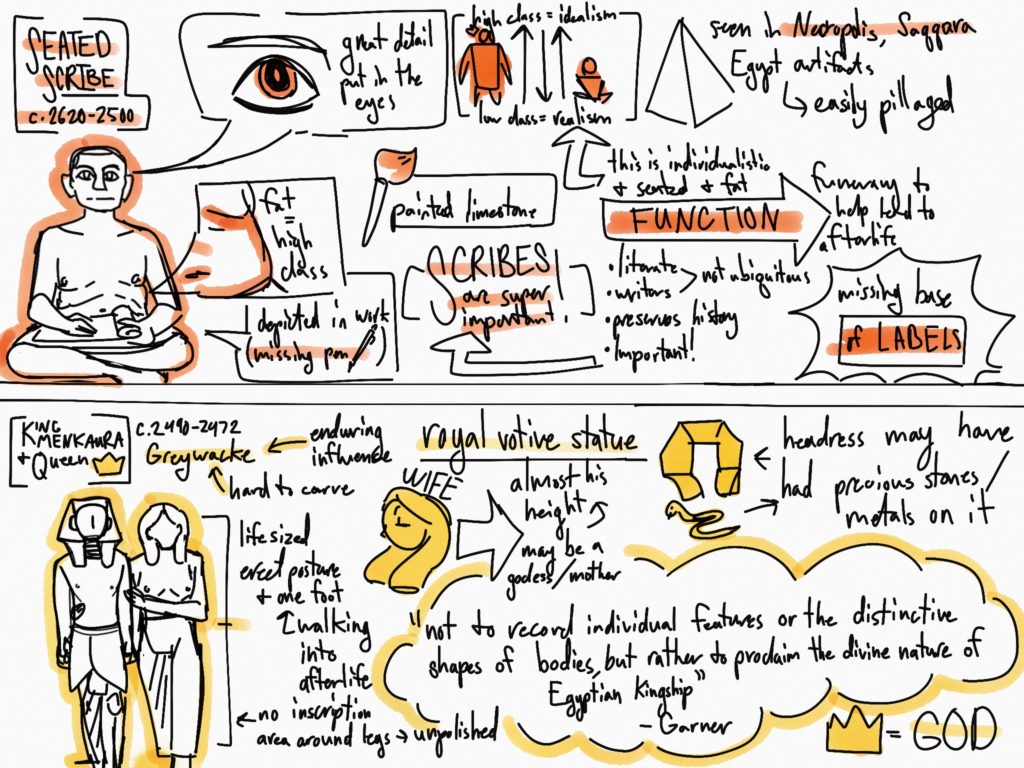 SEATED
SCRIBE
c. 2620-2500
great detail
put in the
eyes
high class = idealism
low class = realism
seen in Necropolis, Saqqara
Egypt artifacts
easily pillaged
fat
=
high
class
painted limestone
this is individualistic
+ seated + fat
FUNCTION
funerary to
help lead to
afterlife
depicted in work
missing pen
SCRIBES
are super
important!
• literate
• writers
not ubiquitous
• preserves history
• Important!
missing base
of LABELS
KING
MENKAURA
+ QUEEN
c. 2490-2472
Greywacke
enduring
influence
hard to carve
life sized
erect posture
+ one foot
walking
into
afterlife
no inscription
area around legs → unpolished
royal votive statue
WIFE
almost his
height
may be a
godess/mother
headress may have
had precious stones/
metals on it
"not to record individual features or the distinctive
shapes of bodies, but rather to proclaim the divine nature of
Egyptian Kingship"
- Garner
= GOD